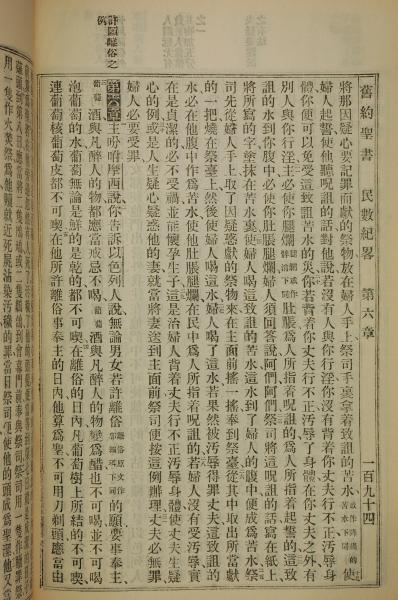 舊約聖書 民數紀畧 第六章 一百九十四
將那因疑心要記罪而獻的祭物放在婦人手上祭司手裏拿着致詛的苦水苦水下同使
婦人起誓使他聽呪詛的話對他說若沒有人與你行淫你沒有背着你丈夫行不正汚辱身
體你便可以免受這致詛苦水的災你若背着你丈夫行不正汚辱了身體在你丈夫之外有
別人與你行淫主必使你腿爛下同肚脹爲人所指着呪詛的爲人所指着起誓的這致
詛的水到你腹中必使你肚脹腿爛婦人須回答說阿們阿們祭司將這呪詛的話寫在紙上
將所寫的字塗抹在苦水裏使婦人喝這致詛的苦水這水到了婦人的腹中便成爲苦水祭
司先從婦人手上取了因疑惑獻的祭物來在主面前搖一搖奉到祭臺從其中取出所當獻
的一把燒在祭臺上然後使婦人喝這水婦人喝了這水若果然被汚辱得罪丈夫這致詛的
水必在他腹中作爲苦水使他肚脹腿爛在民中爲人所指着呪詛的若婦人沒有受汚辱實
在是貞潔的必不受禍並能懷孕生子這是治婦人背着丈夫行不正汚辱身體使丈夫生疑
心的例或是人生疑心疑惑他的妻就當將妻送到主面前祭司便按這例辦理丈夫必無罪
婦人必要受罪
許願離俗之例
第六章主吩咐摩西說你告訴以色列人說無論男女若許離俗離俗原文作下同的願要事奉主
葡萄酒與凡醉人的物都應當戒忌不喝葡萄酒與凡醉人的物變爲醋也不可喝並不可喝
泡葡萄的水葡萄無論是鮮的是乾的都不可喫在離俗的日內凡葡萄樹上所結的不可喫
連葡萄核葡萄皮都不可喫在他所許離俗事奉主的日內他算爲聖不可用刀剃頭應當由